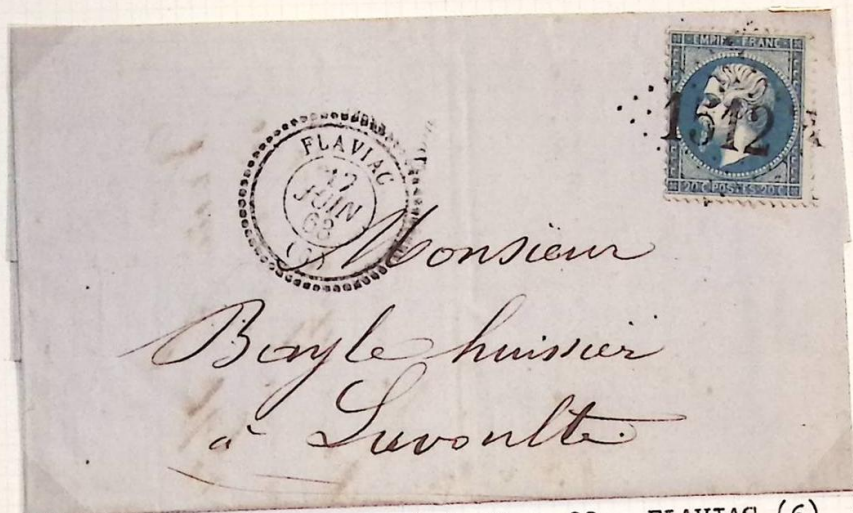 EMPIRE FRANC
1512
20C POSTES 20C
FLAVIAC
17
JUIN
68
(6)
Monsieur
Boyle huissier
à Lavoulte
FLAVIAC (6)